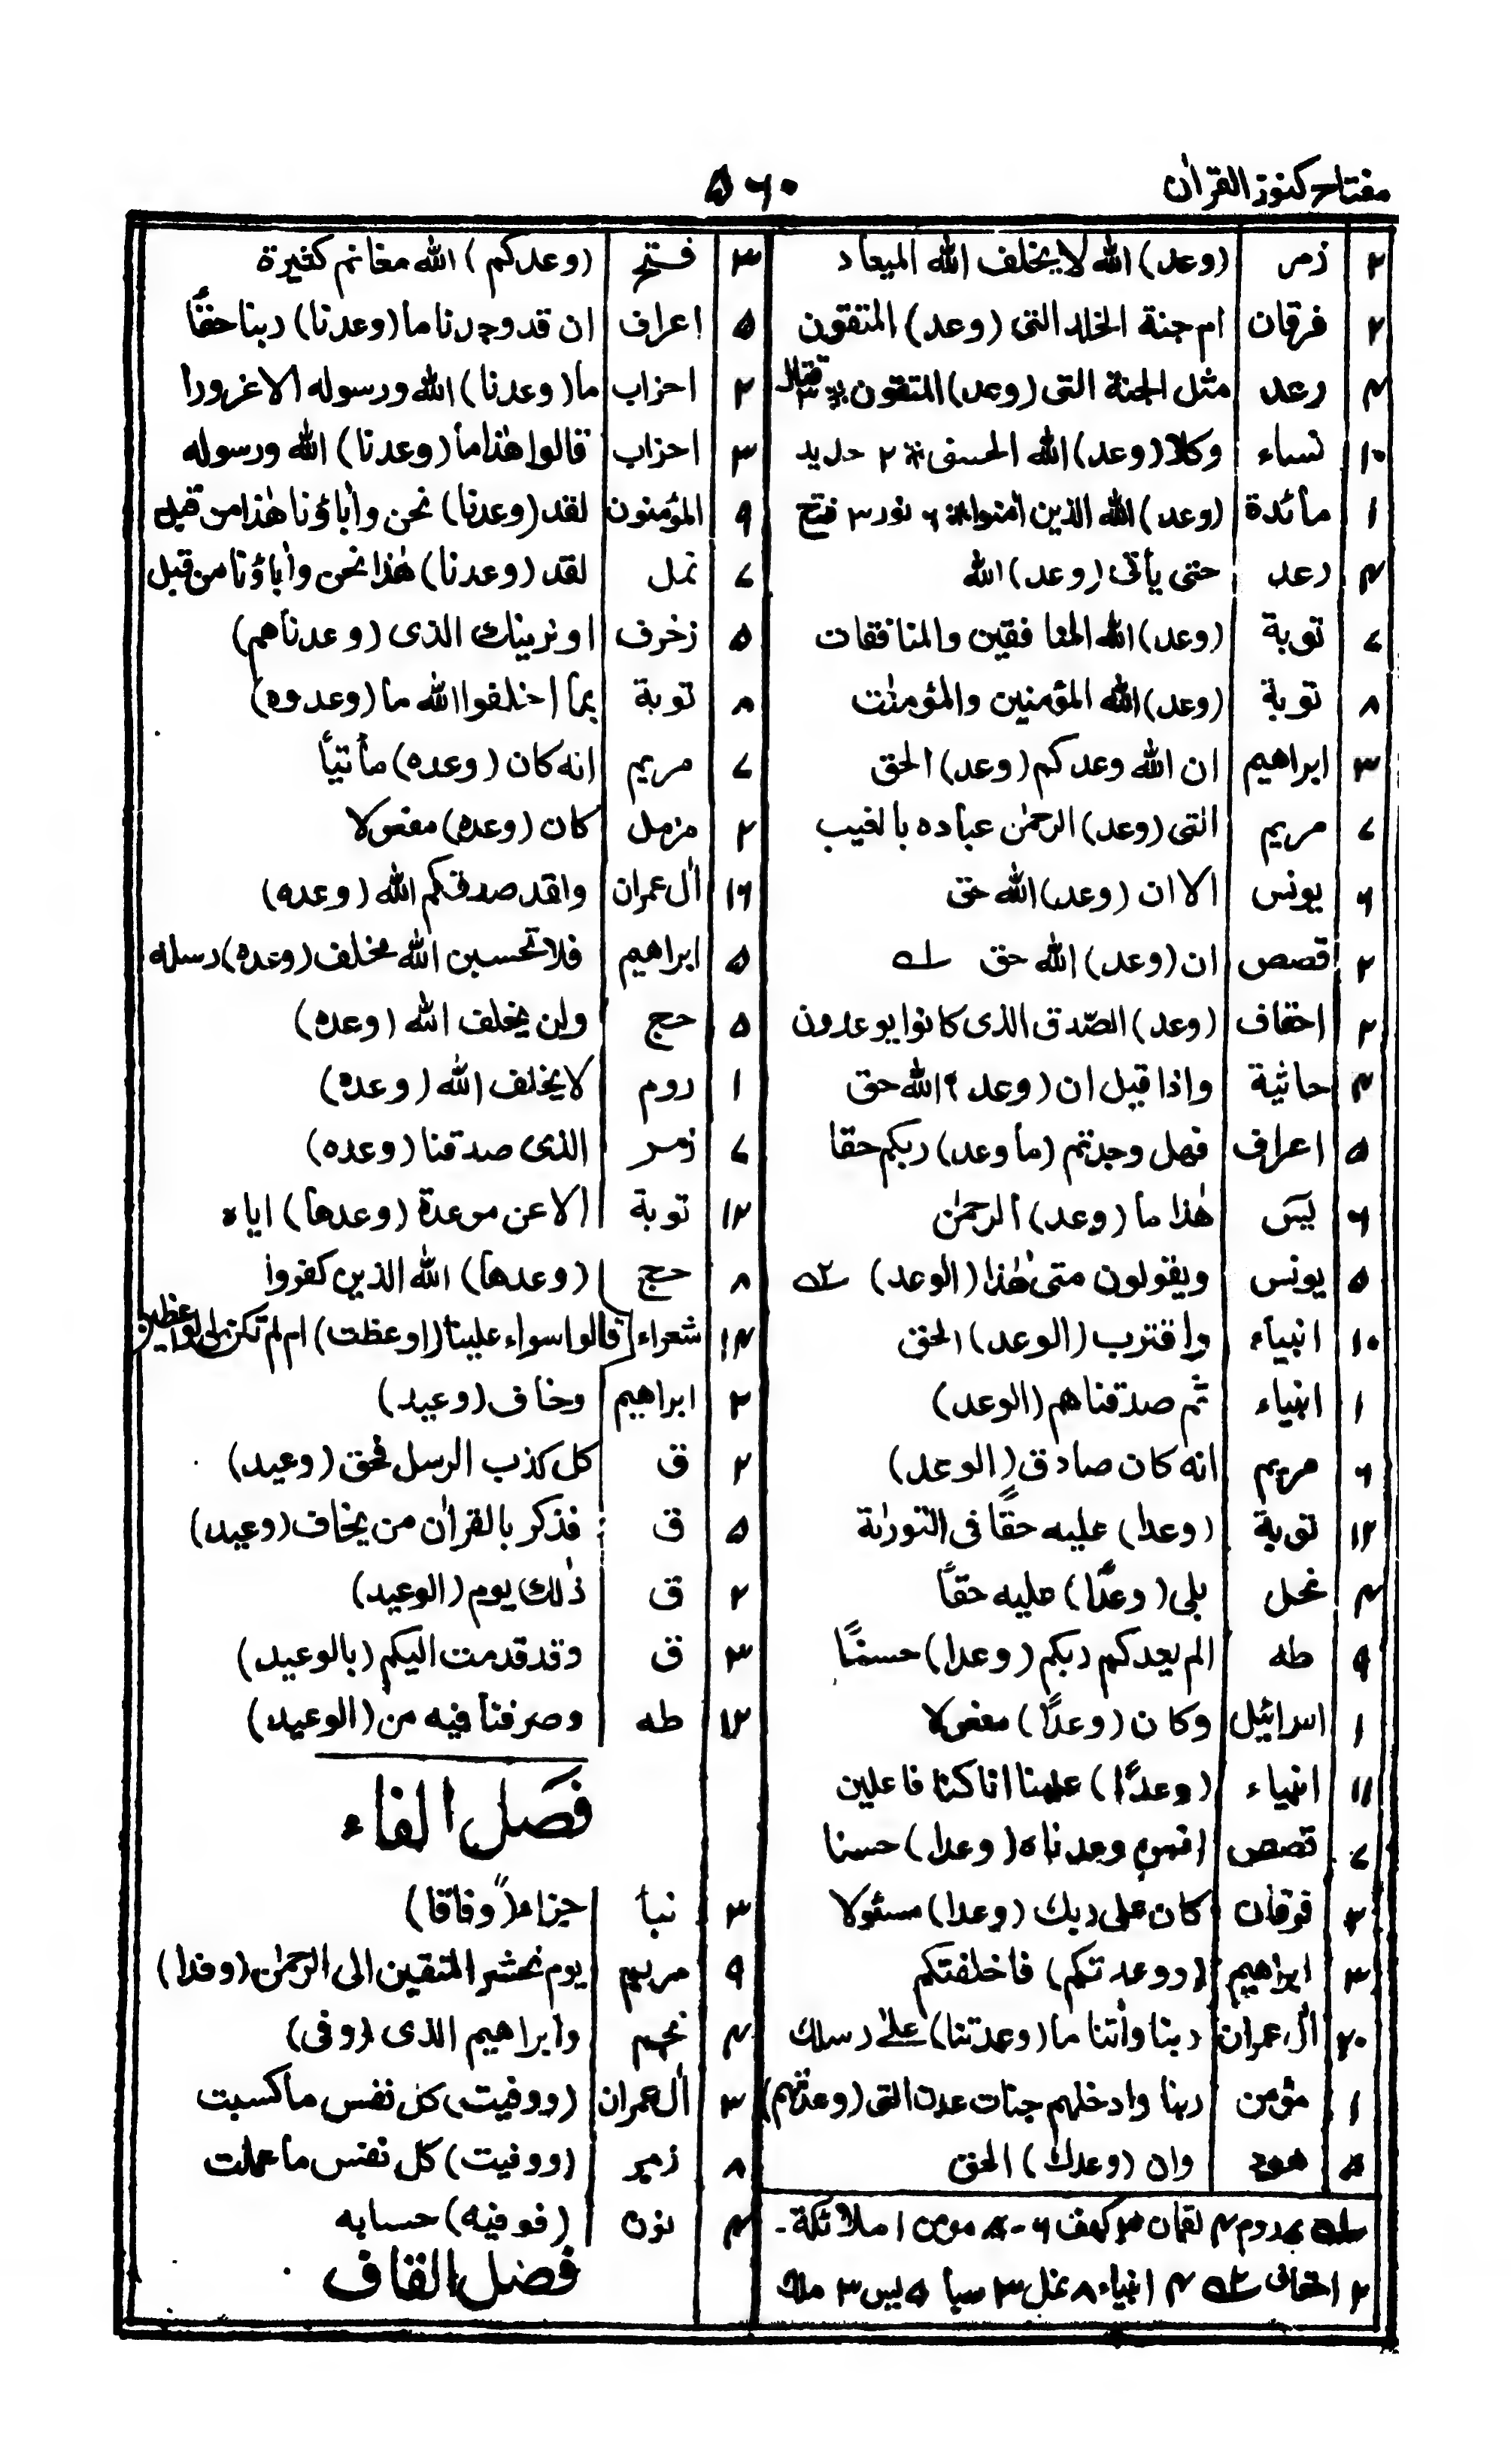 مفتاح کنوز القرآن
۵۶۰
۲ زمر (وعد) الله لا يخلف الله الميعاد
۲ فرقان ام جنة الخلد التى (وعد) المتقون
۴ رعد مثل الجنة التى (وعد) المتقون قتال
۱۰ نساء وكلا (وعد) الله الحسنى ۲ حديد
۱ مائدة (وعد) الله الذين اٰمنوا ۶ نور ۳ فتح
۴ رعد حتى يأتى (وعد) الله
۷ توبة (وعد) الله المنافقين والمنافقات
۸ توبة (وعد) الله المؤمنين والمؤمنٰت
۳ ابراهيم ان الله وعدكم (وعد) الحق
۷ مريم التى (وعد) الرحمٰن عباده بالغيب
۶ يونس الا ان (وعد) الله حق
۲ قصص ان (وعد) الله حق
۲ احقاف (وعد) الصّدق الذى كانوا يوعدون
۴ جاثية واذا قيل ان (وعد) الله حق
۵ اعراف فهل وجدتم (ما وعد) ربكم حقا
۶ يٰسٓ هٰذا ما (وعد) الرحمٰن
۵ يونس ويقولون متى هٰذا (الوعد)
۱۰ انبياء واقترب (الوعد) الحق
۱ انبياء ثم صدقناهم (الوعد)
۶ مريم انه كان صادق (الوعد)
۱۲ توبة (وعدا) عليه حقًا فى التورٰىة
۴ نحل بلى (وعدًا) عليه حقًا
۹ طه الم يعدكم ربكم (وعدا) حسنًا
۱ اسرائيل وكان (وعدًا) مفعولا
۱۱ انبياء (وعدًا) علينا انا كنا فاعلين
۷ قصص افمن وعدناه (وعدا) حسنا
۲ فرقان كان على ربك (وعدا) مسئولا
۳ ابراهيم (ووعدتكم) فاخلفتكم
۲۰ اٰل عمران ربنا واٰتنا ما (وعدتنا) علىٰ رسلك
۱ مؤمن ربنا وادخلهم جنات عدن التى (وعدتهم)
۵ هود وان (وعدك) الحق
روم ۴ لقمان كهف ۶-۸ مومن ۱ ملائكة -
۲ احقاف ۴ انبياء ۸ نمل ۳ سبا ۵ يس ۳ ملك
۳ فتح (وعدكم) الله مغانم كثيرة
۵ اعراف ان قد وجدنا ما (وعدنا) ربنا حقًا
۲ احزاب ما (وعدنا) الله ورسوله الا غرورا
۳ احزاب قالوا هٰذا ما (وعدنا) الله ورسوله
۹ المؤمنون لقد (وعدنا) نحن واٰباؤنا هٰذا من قبل
۷ نمل لقد (وعدنا) هٰذا نحن واٰباؤنا من قبل
۵ زخرف او نرينك الذى (وعدناهم)
۸ توبة بما اخلفوا الله ما (وعدوه)
۷ مريم انه كان (وعده) مأتيا
۲ مزمل كان (وعده) مفعولا
۱۶ اٰل عمران ولقد صدقكم الله (وعده)
۵ ابراهيم فلا تحسبن الله مخلف (وعده) رسله
۵ حج ولن يخلف الله (وعده)
۱ روم لا يخلف الله (وعده)
۷ زمر الذى صدقنا (وعده)
۱۲ توبة الا عن موعدة (وعدها) اياه
۸ حج (وعدها) الله الذين كفروا
۱۴ شعراء قالوا سواء علينا (اوعظت) ام لم تكن من الواعظين
۲ ابراهيم وخاف (وعيد)
۲ ق كل كذب الرسل فحق (وعيد)
۵ ق فذكر بالقراٰن من يخاف (وعيد)
۲ ق ذٰلك يوم (الوعيد)
۳ ق وقد قدمت اليكم (بالوعيد)
۱۲ طه وصرفنا فيه من (الوعيد)
فصل الفاء
۳ نبأ جزاء (وفاقا)
۹ مريم يوم نحشر المتقين الى الرحمٰن (وفدا)
۴ نجم وابراهيم الذى (وفى)
۳ اٰل عمران (ووفيت) كل نفس ما كسبت
۸ زمر (ووفيت) كل نفس ما عملت
۴ نور (فوفيه) حسابه
فصل القاف